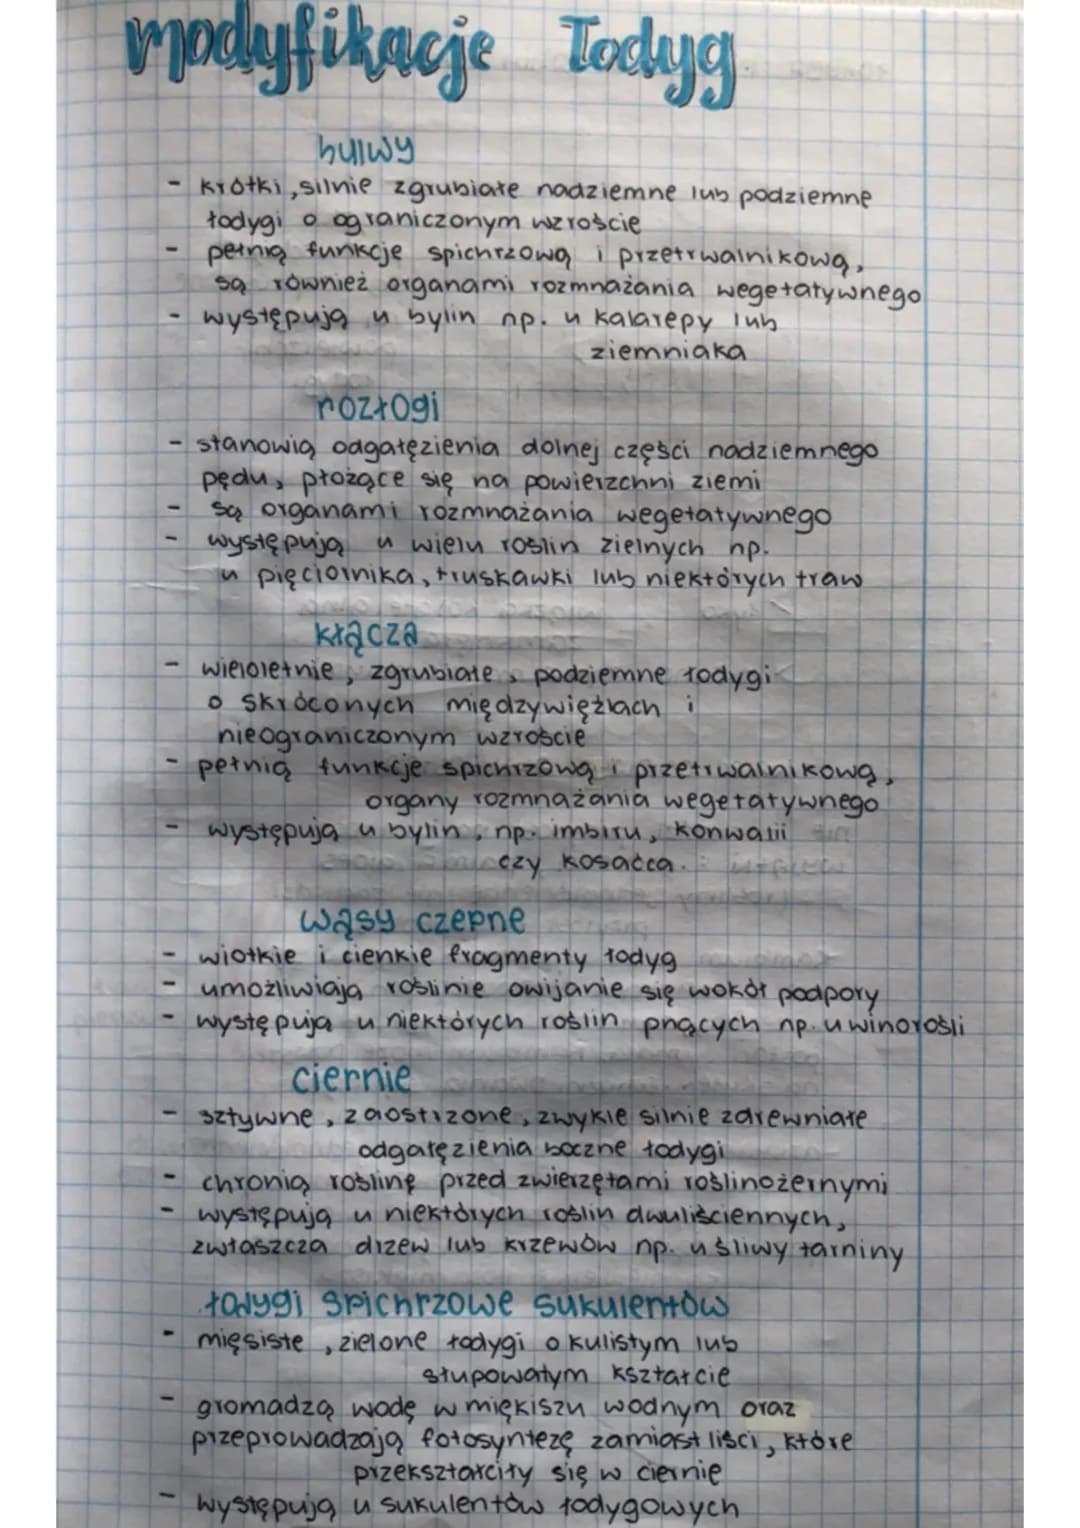 modyfikacje łodyg
bulwy
- krótki, silnie zgrubiałe nadziemne lub podziemne
łodygi o ograniczonym wzroście
- pełnią funkcje spichrzową i przetrwalnikową,
są również organami rozmnażania wegetatywnego
- występują u bylin np. u kalarepy lub
ziemniaka
rozłogi
- stanowią odgałęzienia dolnej części nadziemnego
pędu, płożące się na powierzchni ziemi
- są organami rozmnażania wegetatywnego
- występują u wielu roślin zielnych np.
u pięciornika, truskawki lub niektórych traw
kłącza
- wieloletnie, zgrubiałe, podziemne łodygi
o skróconych międzywięźlach i
nieograniczonym wzroście
- pełnią funkcje spichrzową i przetrwalnikową,
organy rozmnażania wegetatywnego
- występują u bylin, np. imbiru, konwalii
czy kosaćca.
wąsy czepne
- wiotkie i cienkie fragmenty łodyg
- umożliwiają roślinie owijanie się wokół podpory
- występują u niektórych roślin pnących np. u winorośli
ciernie
- sztywne, zaostrzone, zwykle silnie zdrewniałe
odgałęzienia boczne łodygi
- chronią roślinę przed zwierzętami roślinożernymi
- występują u niektórych roślin dwuliściennych,
zwłaszcza drzew lub krzewów np. u śliwy tarniny
łodygi spichrzowe sukulentów
- mięsiste, zielone łodygi o kulistym lub
słupowatym kształcie
- gromadzą wodę w miękiszu wodnym oraz
przeprowadzają fotosyntezę zamiast liści, które
przekształciły się w ciernie
- występują u sukulentów łodygowych